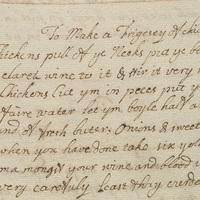 To Make a Frigesey of chic
Chickens pull of ye Necks put ye b
claret wine to it & stir it very
Chickens Cut ym in peces put y
faire water let ym boyle half a
nd of fresh buter. Onions & sweet
when you have done take six yol
mongst your wine and blood
very carefuly least they curde